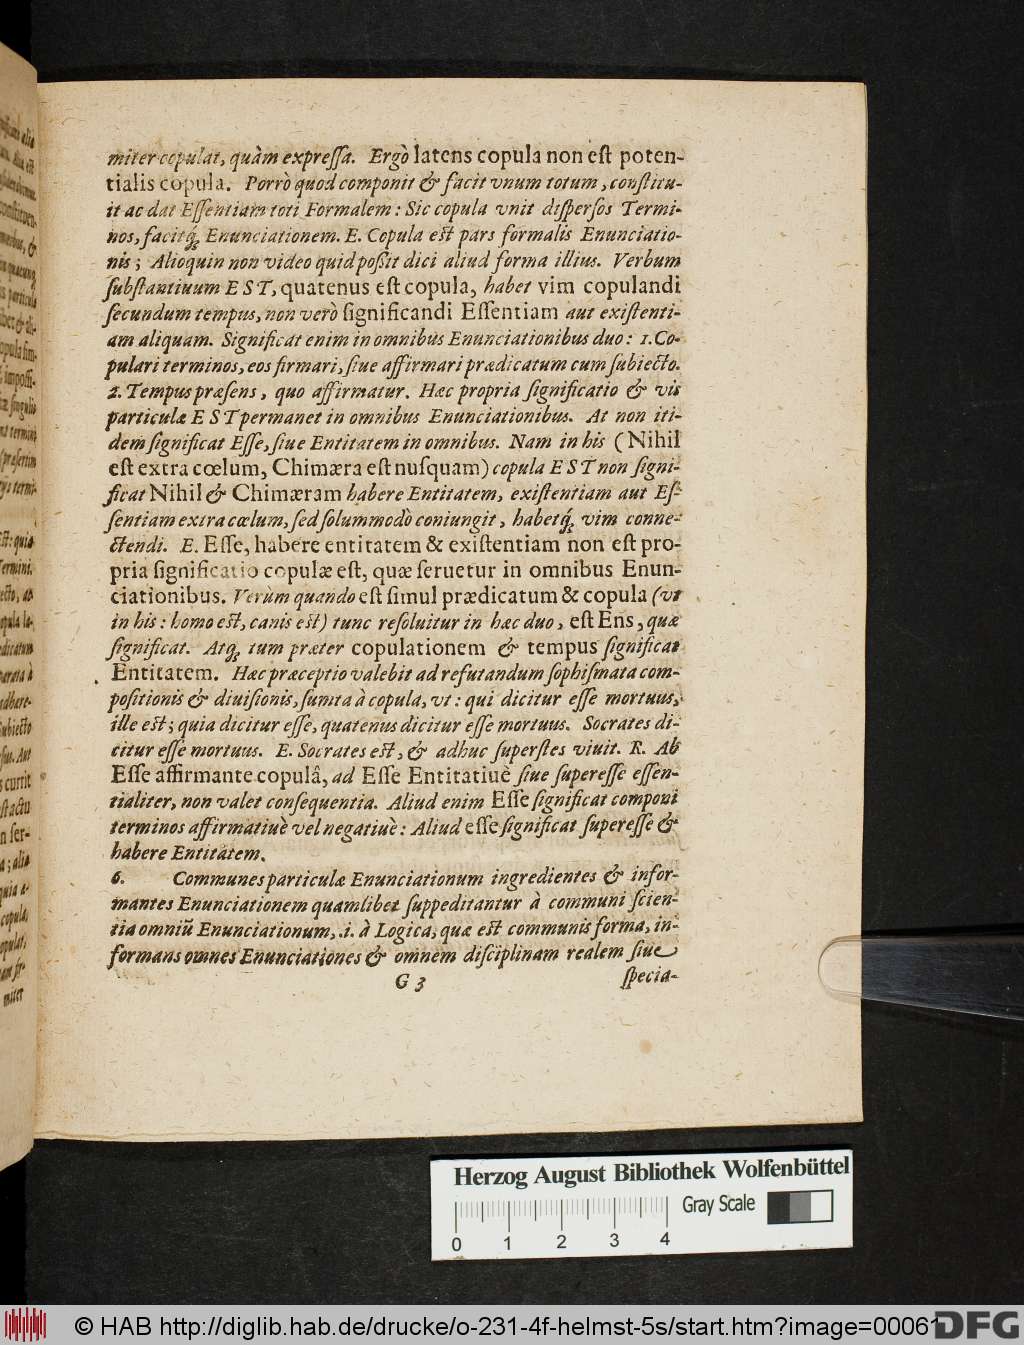 miter copulat, quàm expreſſa. Ergò latens copula non eſt poten-
tialis copula. Porrò quod componit & facit vnum totum, conſtitu-
it ac dat Eſſentiam toti Formalem: Sic copula vnit diſperſos Termi-
nos, facitq́; Enunciationem. E. Copula eſt pars formalis Enunciatio-
nis; Alioquin non video quid poßit dici aliud forma illius. Verbum
ſubſtantiuum EST, quatenus eſt copula, habet vim copulandi
ſecundum tempus, non verò ſignificandi Eſſentiam aut exiſtenti-
am aliquam. Significat enim in omnibus Enunciationibus duo: 1. Co-
pulari terminos, eos firmari, ſiue affirmari prædicatum cum ſubiecto.
2. Tempus præſens, quo affirmatur. Hæc propria ſignificatio & vis
particulæ EST permanet in omnibus Enunciationibus. At non iti-
dem ſignificat Eſſe, ſiue Entitatem in omnibus. Nam in his (Nihil
eſt extra cœlum, Chimæra eſt nuſquam) copula EST non ſigni-
ficat Nihil & Chimæram habere Entitatem, exiſtentiam aut Eſ-
ſentiam extra cœlum, ſed ſolummodò coniungit, habetq́; vim conne-
ctendi. E. Eſſe, habere entitatem & exiſtentiam non eſt pro-
pria ſignificatio copulæ eſt, quæ ſeruetur in omnibus Enun-
ciationibus. Verùm quando eſt ſimul prædicatum & copula (vt
in his: homo eſt, canis eſt) tunc reſoluitur in hæc duo, eſt Ens, quæ
ſignificat. Atq́; tum præter copulationem & tempus ſignificat
Entitatem. Hæc præceptio valebit ad refutandum ſophiſmata com-
poſitionis & diuiſionis, ſumta à copula, vt: qui dicitur eſſe mortuus,
ille eſt; quia dicitur eſſe, quatenus dicitur eſſe mortuus. Socrates di-
citur eſſe mortuus. E. Socrates eſt, & adhuc ſuperſtes viuit. R. Ab
Eſſe affirmante copulâ, ad Eſſe Entitatiuè ſiue ſupereſſe eſſen-
tialiter, non valet conſequentia. Aliud enim Eſſe ſignificat componi
terminos affirmatiuè vel negatiuè: Aliud eſſe ſignificat ſupereſſe &
habere Entitatem.
6. Communes particulæ Enunciationum ingredientes & infor-
mantes Enunciationem quamlibet ſuppeditantur à communi ſcien-
tia omniũ Enunciationum, .i. à Logica, quæ eſt communis forma, in-
formans omnes Enunciationes & omnem diſciplinam realem ſiue
G 3 ſpecia-
Herzog August Bibliothek Wolfenbüttel
Gray Scale
0 1 2 3 4
© HAB http://diglib.hab.de/drucke/o-231-4f-helmst-5s/start.htm?image=00061
DFG